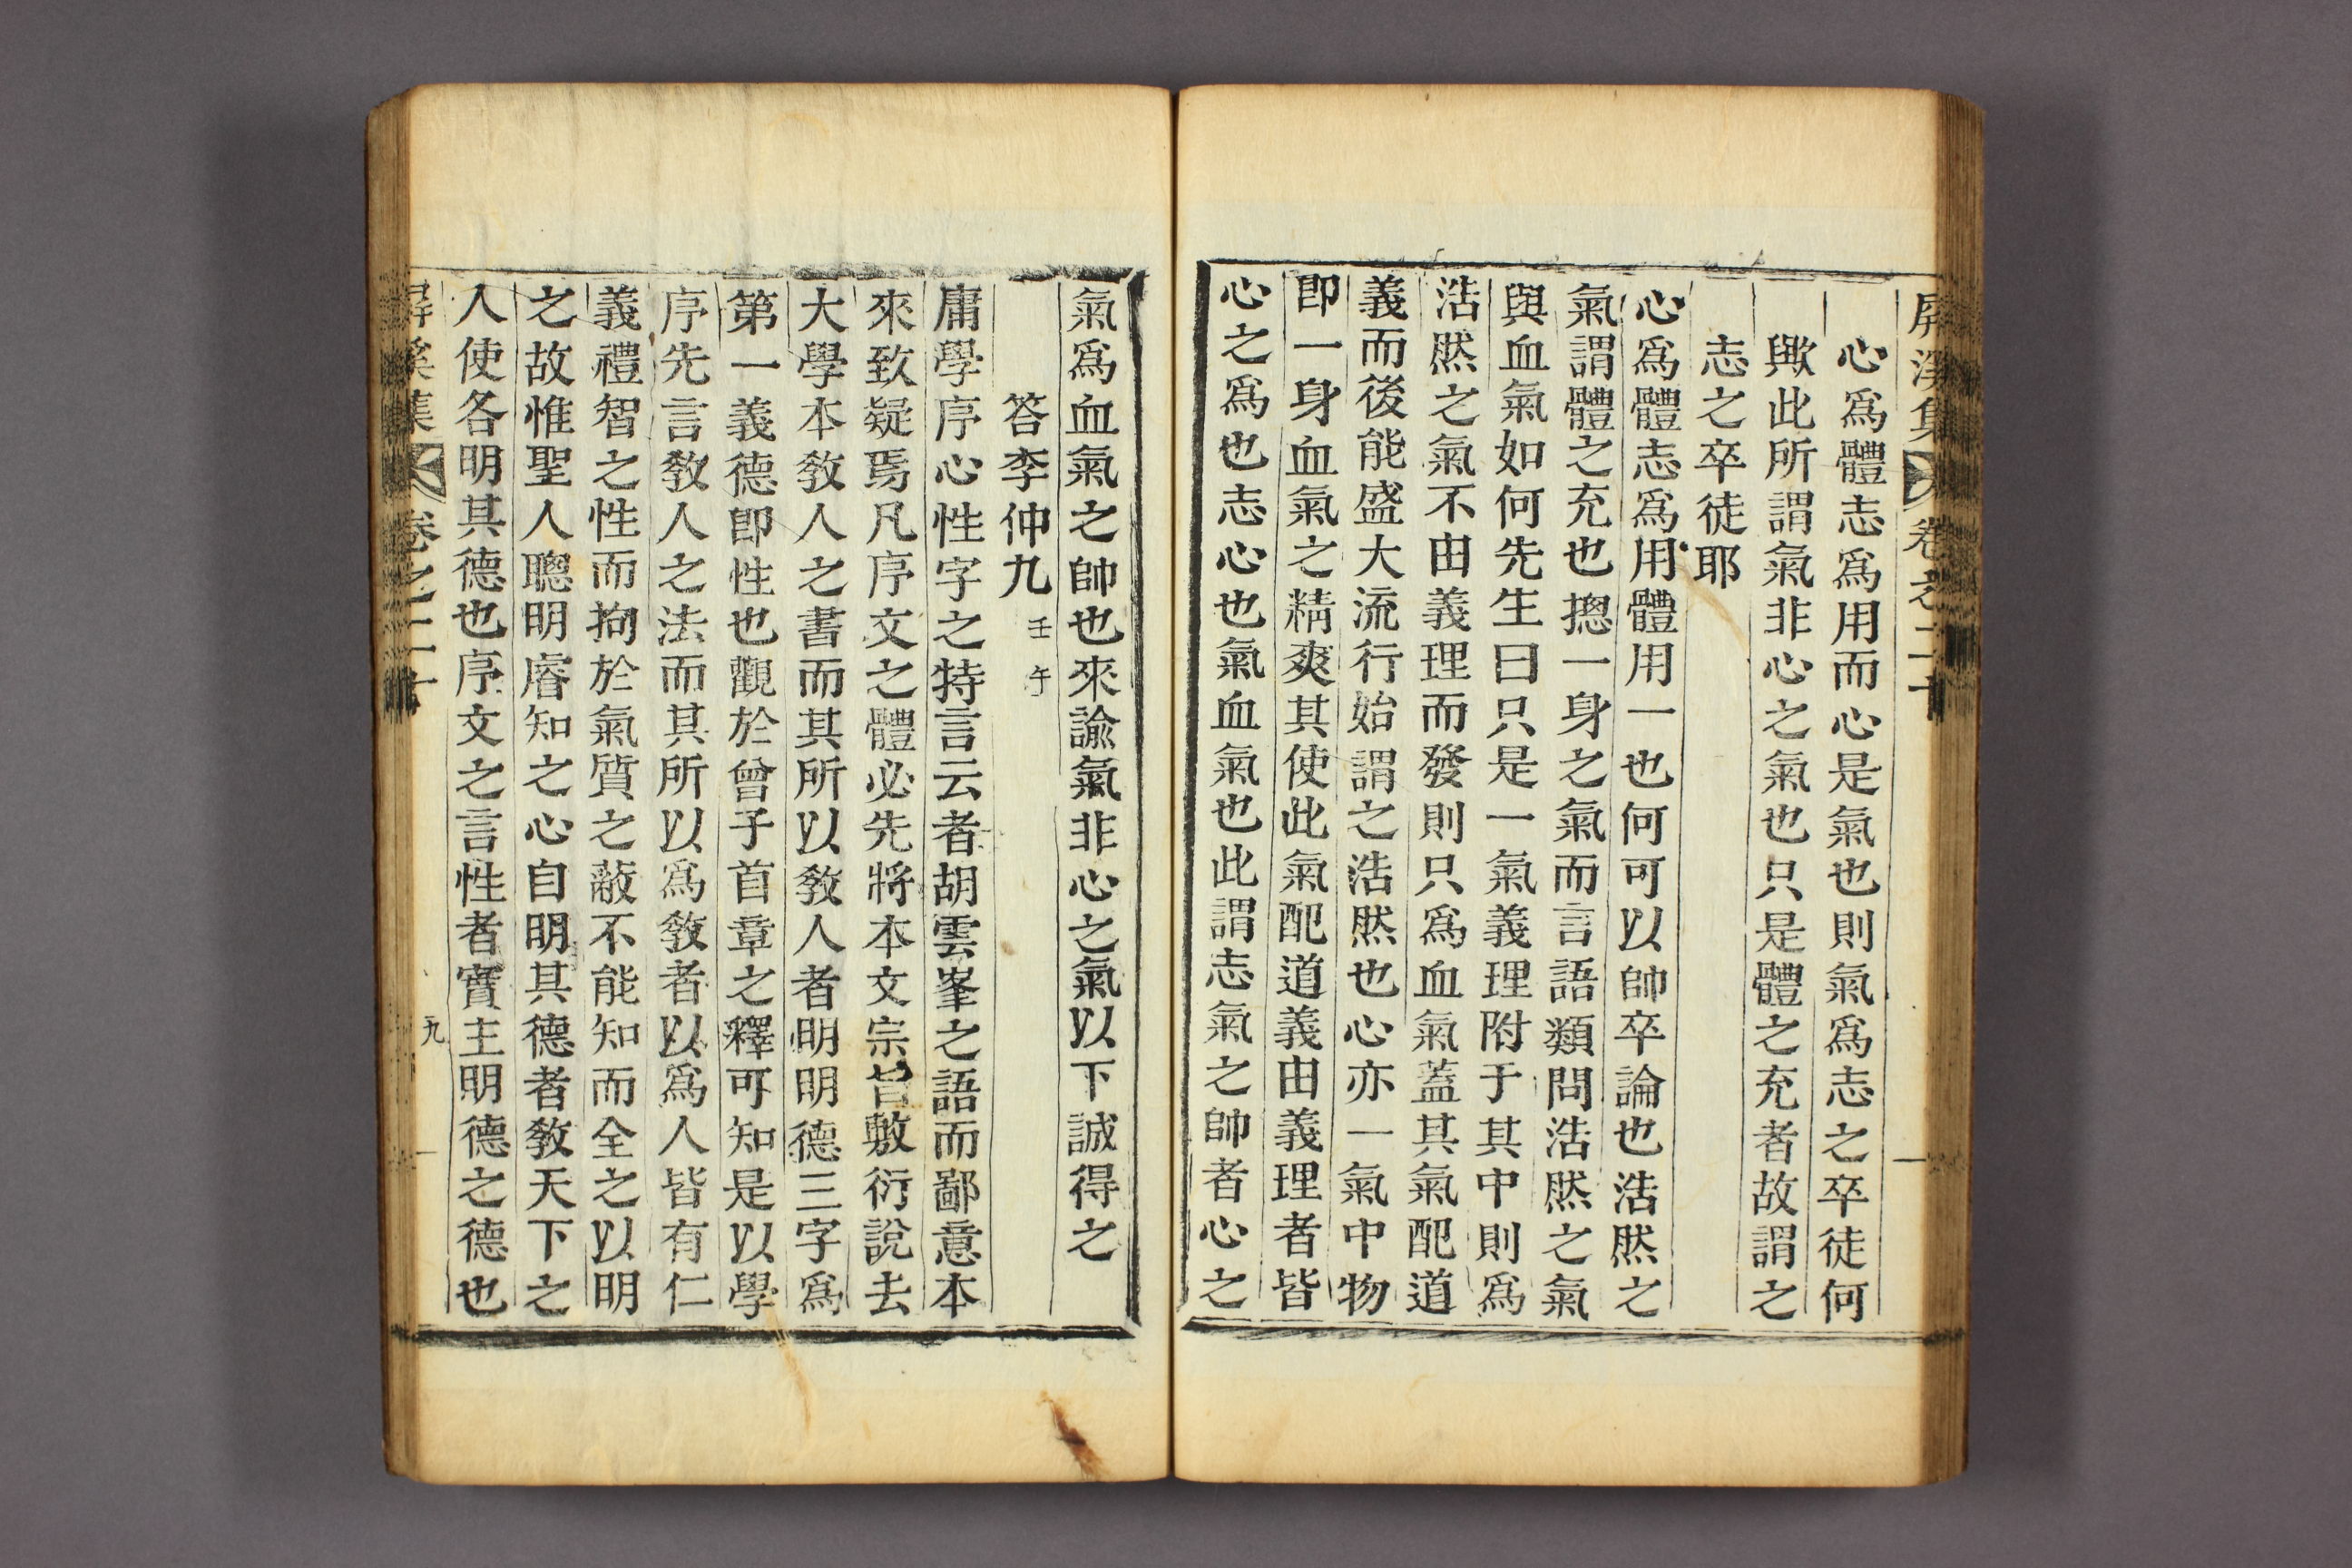 屏溪集 卷之二十
心爲體志爲用而心是氣也則氣爲志之卒徒何
歟此所謂氣非心之氣也只是體之充者故謂之
志之卒徒耶
心爲體志爲用體用一也何可以帥卒論也浩然之
氣謂體之充也摠一身之氣而言語類問浩然之氣
與血氣如何先生曰只是一氣義理附于其中則爲
浩然之氣不由義理而發則只爲血氣蓋其氣配道
義而後能盛大流行始謂之浩然也心亦一氣中物
卽一身血氣之精爽其使此氣配道義由義理者皆
心之爲也志心也氣血氣也此謂志氣之帥者心之
氣爲血氣之帥也來諭氣非心之氣以下誠得之
答李仲九 壬午
庸學序心性字之特言云者胡雲峯之語而鄙意本
來致疑焉凡序文之體必先將本文宗旨敷衍說去
大學本敎人之書而其所以敎人者明明德三字爲
第一義德卽性也觀於曾子首章之釋可知是以學
序先言敎人之法而其所以爲敎者以爲人皆有仁
義禮智之性而拘於氣質之蔽不能知而全之以明
之故惟聖人聰明睿知之心自明其德者敎天下之
人使各明其德也序文之言性者實主明德之德也
屏溪集 卷之二十 九